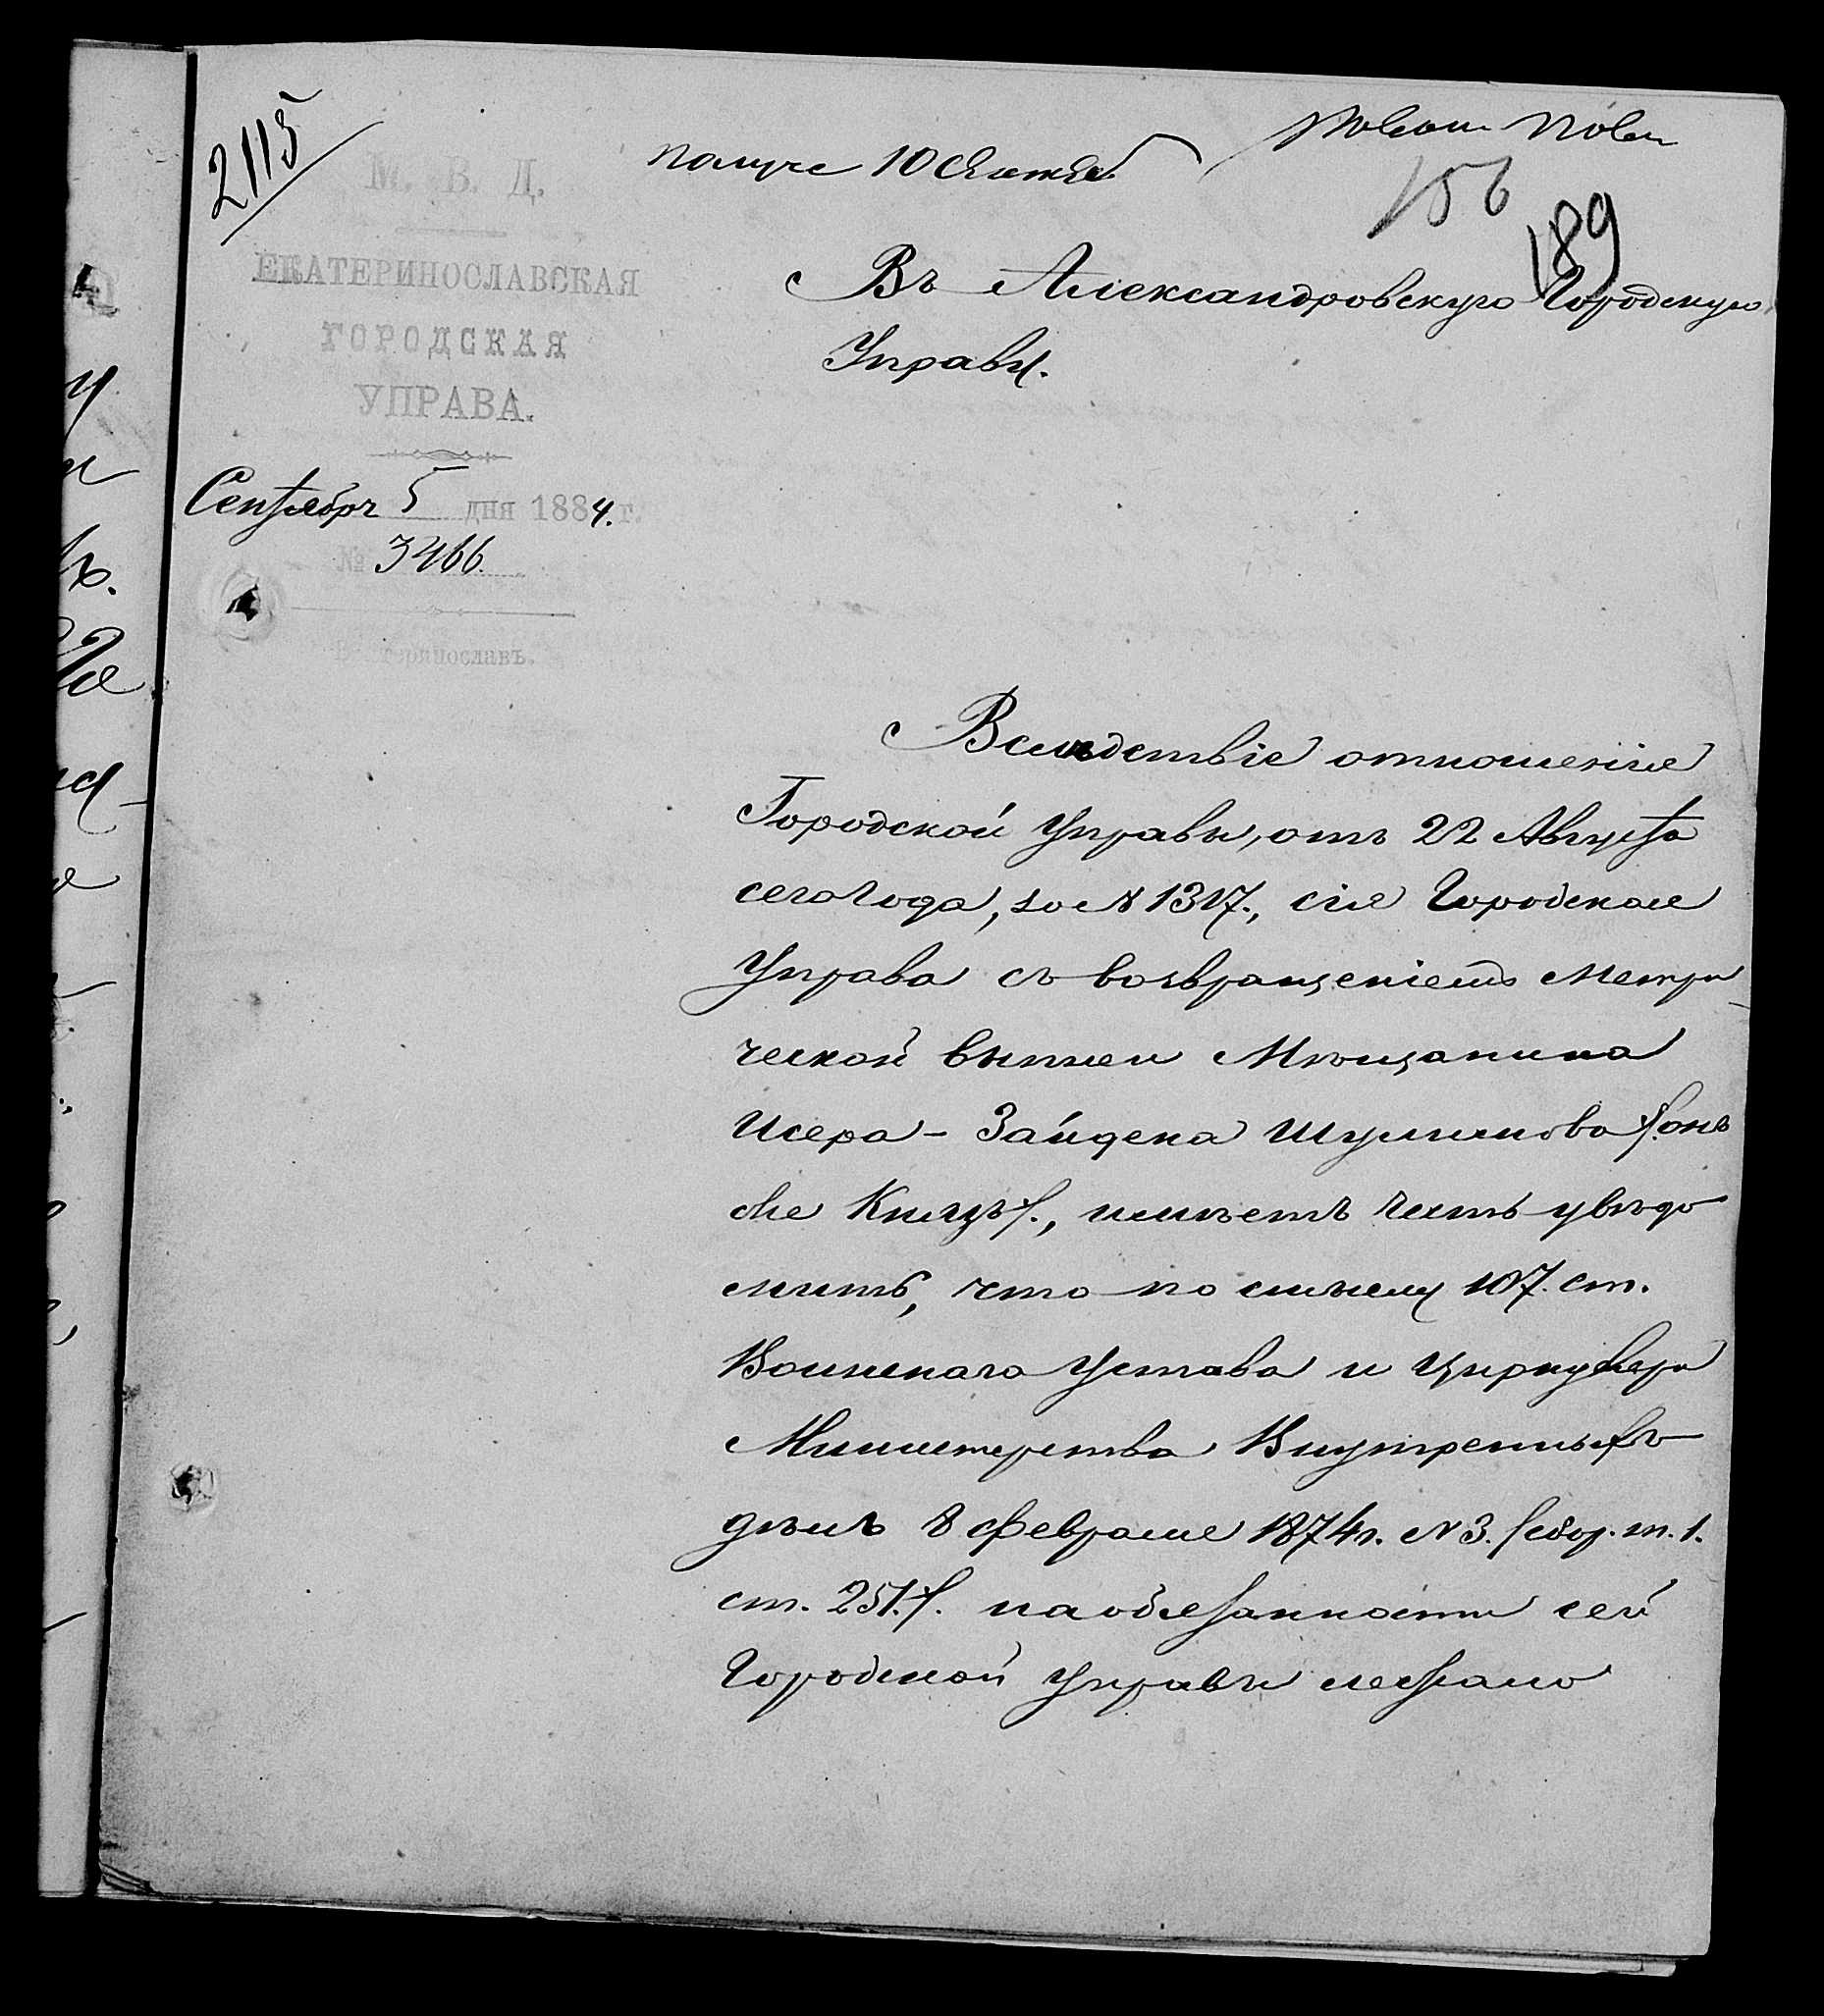 2115
М. В. Д.
ЕКАТЕРИНОСЛАВСКАЯ
ГОРОДСКАЯ
УПРАВА.
Сентября 5 дня 1884. г.
№ 3466.
получе 10 Сентяб
156
189
Въ Александровскую Городскую
Управу.
Вслѣдствіе отношенія
Городской Управы, отъ 22 Августа
сего года, за № 1317., сія Городская
Управа съ возвращеніемъ метри
ческой выписи Мѣщанина
Исера-Зайдена Шулимова /:онъ
же Князь:/., имѣетъ честь увѣдо
мить, что по смыслу 107. ст.
Воинскаго Устава и циркуляра
Министерства Внутреннихъ
дѣлъ 8 Февраля 1874 г. № 3. /сбор. т. 1.
ст. 251./. на обязанности сей
Городской Управы лежало